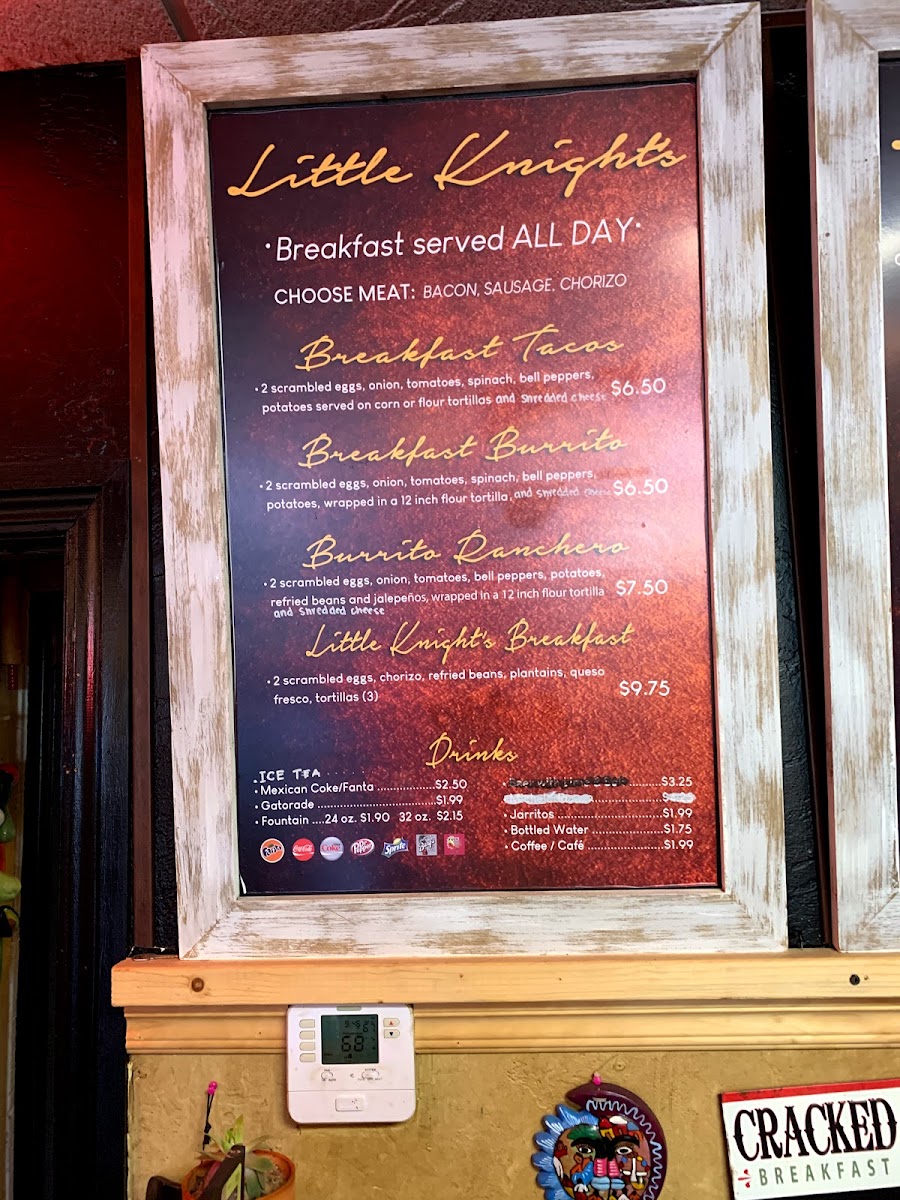 Little Knight's
•Breakfast served ALL DAY•
CHOOSE MEAT: BACON, SAUSAGE. CHORIZO
Breakfast Tacos
• 2 scrambled eggs, onion, tomatoes, spinach, bell peppers,
potatoes served on corn or flour tortillas and Shredded cheese $6.50
Breakfast Burrito
• 2 scrambled eggs, onion, tomatoes, spinach, bell peppers,
potatoes, wrapped in a 12 inch flour tortilla, and Shredded cheese $6.50
Burrito Ranchero
• 2 scrambled eggs, onion, tomatoes, bell peppers, potatoes,
refried beans and jalepeños, wrapped in a 12 inch flour tortilla $7.50
and Shredded cheese
Little Knight's Breakfast
• 2 scrambled eggs, chorizo, refried beans, plantains, queso
fresco, tortillas (3) $9.75
Drinks
• ICE TEA
• Mexican Coke/Fanta ..................$2.50
• Gatorade ....................................$1.99
• Fountain ....24 oz. $1.90 32 oz. $2.15
Fanta Coca-Cola Coke Dr Pepper Sprite
..........$3.25
• Jarritos .................................$1.99
• Bottled Water ......................$1.75
• Coffee / Café .......................$1.99
68
CRACKED
BREAKFAST